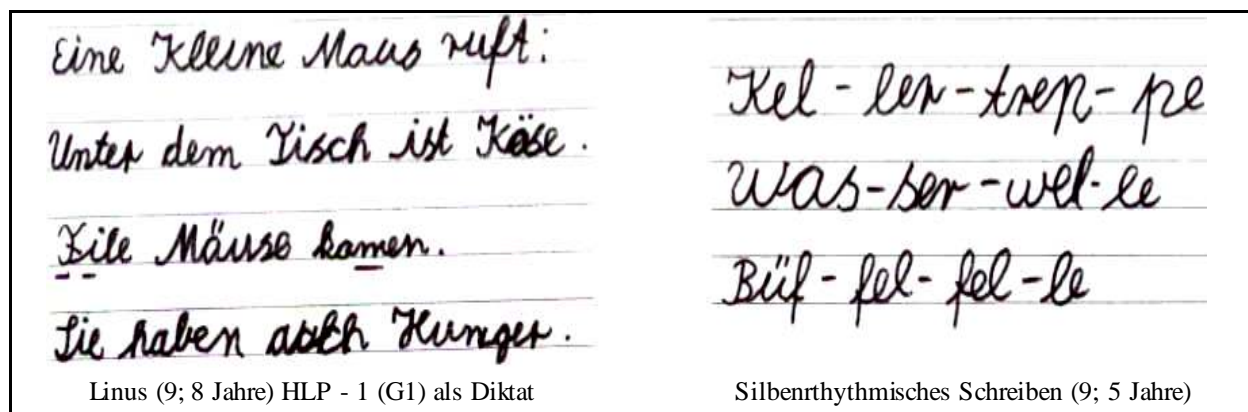 Eine Kleine Maus ruft:
Unter dem Tisch ist Käse.
File Mäuse kamen.
Sie haben auch Hunger.
Linus (9; 8 Jahre) HLP - 1 (G1) als Diktat
Kel - ler - trep - pe
Was - ser - wel - le
Büf - fel - fel - le
Silbenrthythmisches Schreiben (9; 5 Jahre)